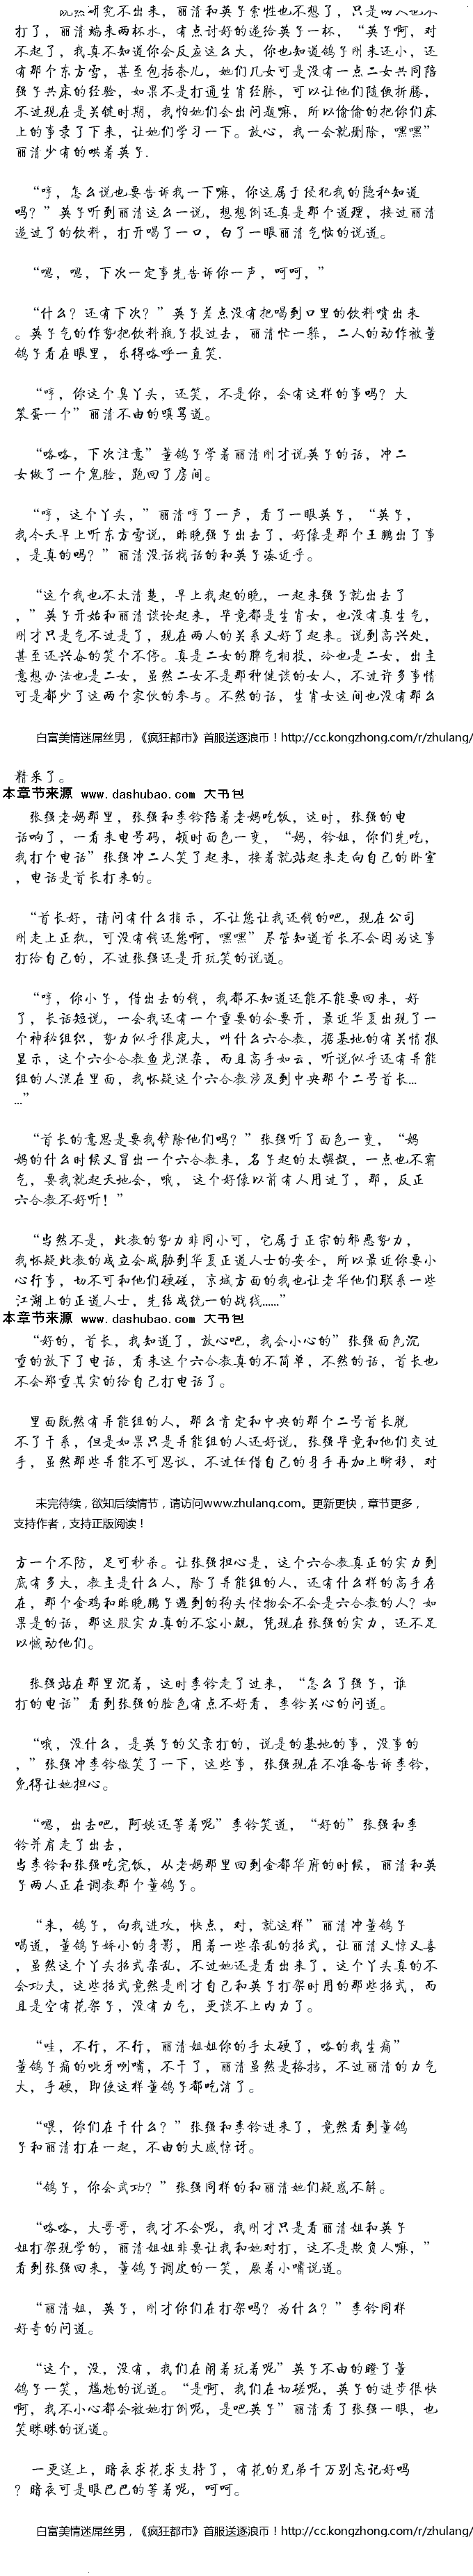 既然研究不出来，丽清和英子索性也不想了，只是两人也不
打了，丽清端来两杯水，有点讨好的递给英子一杯，“英子啊，对
不起了，我真不知道你会反应这么大，你也知道鸽子刚来还小，还
有那个东方雪，甚至包括春儿，她们几女可是没有一点二女共同陪
强子共床的经验，如果不是打通生肖经脉，可以让他们随便折腾，
不过现在是关键时期，我怕她们会出问题嘛，所以偷偷的把你们床
上的事录了下来，让她们学习一下。放心，我一会就删除，嘿嘿”
丽清少有的哄着英子.
“哼，怎么说也要告诉我一下嘛，你这属于侵犯我的隐私知道
吗？”英子听到丽清这么一说，想想倒还真是那个道理，接过丽清
递过了的饮料，打开喝了一口，白了一眼丽清气恼的说道。
“嗯，嗯，下次一定事先告诉你一声，呵呵，”
“什么？还有下次？”英子差点没有把喝到口里的饮料喷出来
。英子气的作势把饮料瓶子投过去，丽清忙一躲，二人的动作被董
鸽子看在眼里，乐得咯呼一直笑.
“哼，你这个臭丫头，还笑，不是你，会有这样的事吗？大
笨蛋一个”丽清不由的嗔骂道。
“咯咯，下次注意”董鸽子学着丽清刚才说英子的话，冲二
女做了一个鬼脸，跑回了房间。
“哼，这个丫头，”丽清哼了一声，看了一眼英子，“英子，
我今天早上听东方雪说，昨晚强子出去了，好像是那个王鹏出了事
，是真的吗？”丽清没话找话的和英子凑近乎。
“这个我也不太清楚，早上我起的晚，一起来强子就出去了
，”英子开始和丽清谈论起来，毕竟都是生肖女，也没有真生气，
刚才只是气不过是了，现在两人的关系又好了起来。说到高兴处，
甚至还兴奋的笑个不停。真是二女的脾气相投，冷也是二女，出主
意想办法也是二女，虽然二女不是那种健谈的女人，不过许多事情
可是都少了这两个家伙的参与。不然的话，生肖女这间也没有那么
白富美情迷屌丝男，《疯狂都市》首服送逐浪币！http://cc.kongzhong.com/r/zhulang/
精采了。
本章节来源 www.dashubao.com 大书包
张强老妈那里，张强和李铃陪着老妈吃饭，这时，张强的电
话响了，一看来电号码，顿时面色一变，“妈，铃姐，你们先吃，
我打个电话”张强冲二人笑了起来，接着就站起来走向自己的卧室
，电话是首长打来的。
“首长好，请问有什么指示，不让您让我还钱的吧，现在公司
刚走上正轨，可没有钱还您啊，嘿嘿”尽管知道首长不会因为这事
打给自己的，不过张强还是开玩笑的说道。
“哼，你小子，借出去的钱，我都不知道还能不能要回来，好
了，长话短说，一会我还有一个重要的会要开，最近华夏出现了一
个神秘组织，势力似乎很庞大，叫什么六合教，据基地的有关情报
显示，这个六全合教鱼龙混杂，而且高手如云，听说似乎还有异能
组的人混在里面，我怀疑这个六合教涉及到中央那个二号首长...
...”
“首长的意思是要我铲除他们吗？”张强听了面色一变，“妈
妈的什么时候又冒出一个六合教来，名子起的太龌龊，一点也不霸
气，要我就起天地会，哦，这个好像以前有人用过了，那，反正
六合教不好听！”
“当然不是，此教的势力非同小可，它属于正宗的邪恶势力，
我怀疑此教的成立会威胁到华夏正道人士的安全，所以最近你要小
心行事，切不可和他们硬碰，京城方面的我也让老华他们联系一些
江湖上的正道人士，先结成统一的战线......”
本章节来源 www.dashubao.com 大书包
“好的，首长，我知道了，放心吧，我会小心的”张强面色沉
重的放下了电话，看来这个六合教真的不简单，不然的话，首长也
不会郑重其实的给自己打电话了。
里面既然有异能组的人，那么肯定和中央的那个二号首长脱
不了干系，但是如果只是异能组的人还好说，张强毕竟和他们交过
手，虽然那些异能不可思议，不过任借自己的身手再加上瞬移，对
未完待续，欲知后续情节，请访问www.zhulang.com。更新更快，章节更多，
支持作者，支持正版阅读！
方一个不防，足可秒杀。让张强担心是，这个六合教真正的实力到
底有多大，教主是什么人，除了异能组的人，还有什么样的高手存
在，那个金鸡和昨晚鹏子遇到的狗头怪物会不会是六合教的人？如
果是的话，那这股实力真的不容小觑，凭现在张强的实力，还不足
以憾动他们。
张强站在那里沉着，这时李铃走了过来，“怎么了强子，谁
打的电话”看到张强的脸色有点不好看，李铃关心的问道。
“哦，没什么，是英子的父亲打的，说是的基地的事，没事的
，”张强冲李铃微笑了一下，这些事，张强现在不准备告诉李铃，
免得让她担心。
“嗯，出去吧，阿姨还等着呢”李铃笑道，“好的”张强和李
铃并肩走了出去，
当李铃和张强吃完饭，从老妈那里回到金都华府的时候，丽清和英
子两人正在调教那个董鸽子。
“来，鸽子，向我进攻，快点，对，就这样”丽清冲董鸽子
喝道，董鸽子娇小的身影，用着一些杂乱的招式，让丽清又惊又喜
，虽然这个丫头招式杂乱，不过她还是看出来了，这个丫头真的不
会功夫，这些招式竟然是刚才自己和英子打架时用的那些招式，而
且是空有花架子，没有力气，更谈不上内力了。
“哇，不行，不行，丽清姐姐你的手太硬了，咯的我生痛”
董鸽子痛的呲牙咧嘴，不干了，丽清虽然是格挡，不过丽清的力气
大，手硬，即使这样董鸽子都吃消了。
“喂，你们在干什么？”张强和李铃进来了，竟然看到董鸽
子和丽清打在一起，不由的大感惊讶。
“鸽子，你会武功？”张强同样的和丽清她们疑惑不解。
“咯咯，大哥哥，我才不会呢，我刚才只是看丽清姐和英子
姐打架现学的，丽清姐姐非要让我和她对打，这不是欺负人嘛，”
看到张强回来，董鸽子调皮的一笑，厥着小嘴说道。
“丽清姐，英子，刚才你们在打架吗？为什么？”李铃同样
好奇的问道。
“这个，没，没有，我们在闹着玩着呢”英子不由的瞪了董
鸽子一笑，尴尬的说道。“是啊，我们在切磋呢，英子的进步很快
啊，我不小心都会被她打倒呢，是吧英子”丽清看了张强一眼，也
笑眯眯的说道。
一更送上，暗夜求花求支持了，有花的兄弟千万别忘记好吗
？暗夜可是眼巴巴的等着呢，呵呵。
白富美情迷屌丝男，《疯狂都市》首服送逐浪币！http://cc.kongzhong.com/r/zhulang/